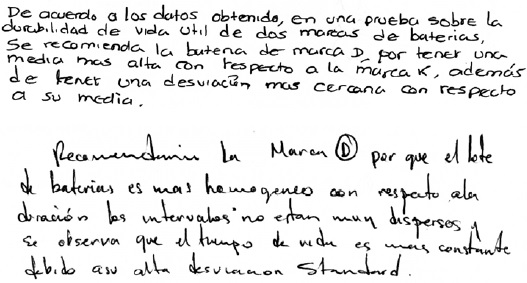 De acuerdo a los datos obtenido, en una prueba sobre la
durabilidad de vida util de dos marcas de baterias,
Se recomienda la bateria de marca D, por tener una
media mas alta con respecto a la marca K, además
de tener una desviación mas cercana con respecto
a su media.
Recomendamos la Marca D por que el lote
de baterias es mas homogeneo con respecto ala
duración los intervalos no estan muy dispersos y
se observa que el tiempo de vida es mas constante
debido asu alta desviacion Standard.